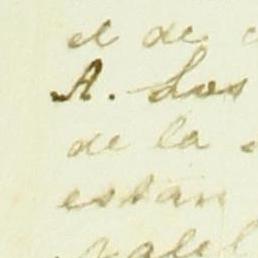 el de
A. Los
de la
están